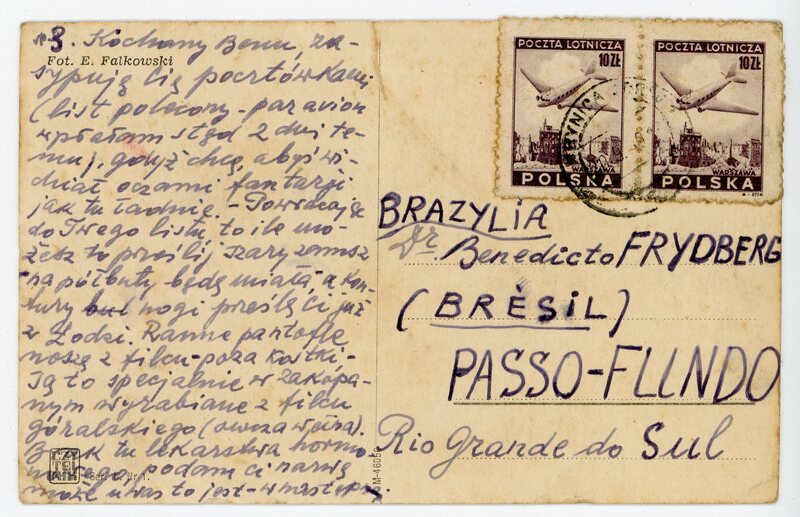 3. Kochany Benu, za-
Fot. E. Falkowski
sypuję Cię pocztówkami
(list polecony - par avion
wysłałam stąd 2 dni te-
mu), gdyż chcę, abyś wi-
dział oczami fantazji
jak tu ładnie. - Powracając
do Twego listu, to ile mo-
żesz to prześlij szary zamsz
na półbuty będę miała, a kon-
tury nogi prześlę Ci już
z Łodzi. Ranne pantofle
noszę z filcu - poza kostki. -
Są to specjalnie w Zakopa-
nym wyrabiane z filcu
góralskiego (owcza wełna).
Brak tu lekarstwa hormo-
nalnego, podam ci nazwę
może u was to jest - w następn.
CZYTELNIK
Ser. Nr 1.
M-46059
POCZTA LOTNICZA
10 ZŁ
WARSZAWA
POLSKA
POCZTA LOTNICZA
10 ZŁ
WARSZAWA
POLSKA
KRYNICA
BRAZYLIA
Dr Benedicto FRYDBERG
(BRÈSIL)
PASSO-FUNDO
Rio Grande do Sul